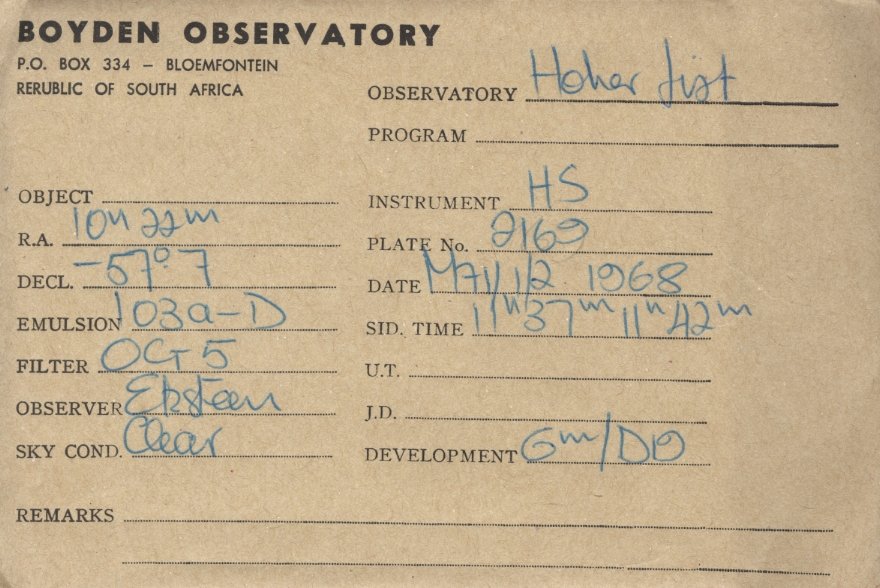 BOYDEN OBSERVATORY
P.O. BOX 334 – BLOEMFONTEIN
RERUBLIC OF SOUTH AFRICA
OBSERVATORY Hoher List
PROGRAM
OBJECT
R.A. 10h 22m
DECL. -57°.7
EMULSION 103a-D
FILTER OG 5
OBSERVER Eksteen
SKY COND. Clear
INSTRUMENT HS
PLATE No. 2169
DATE 1/2 1968
SID. TIME 11h37m 11h42m
U.T.
J.D.
DEVELOPMENT 6m/
REMARKS